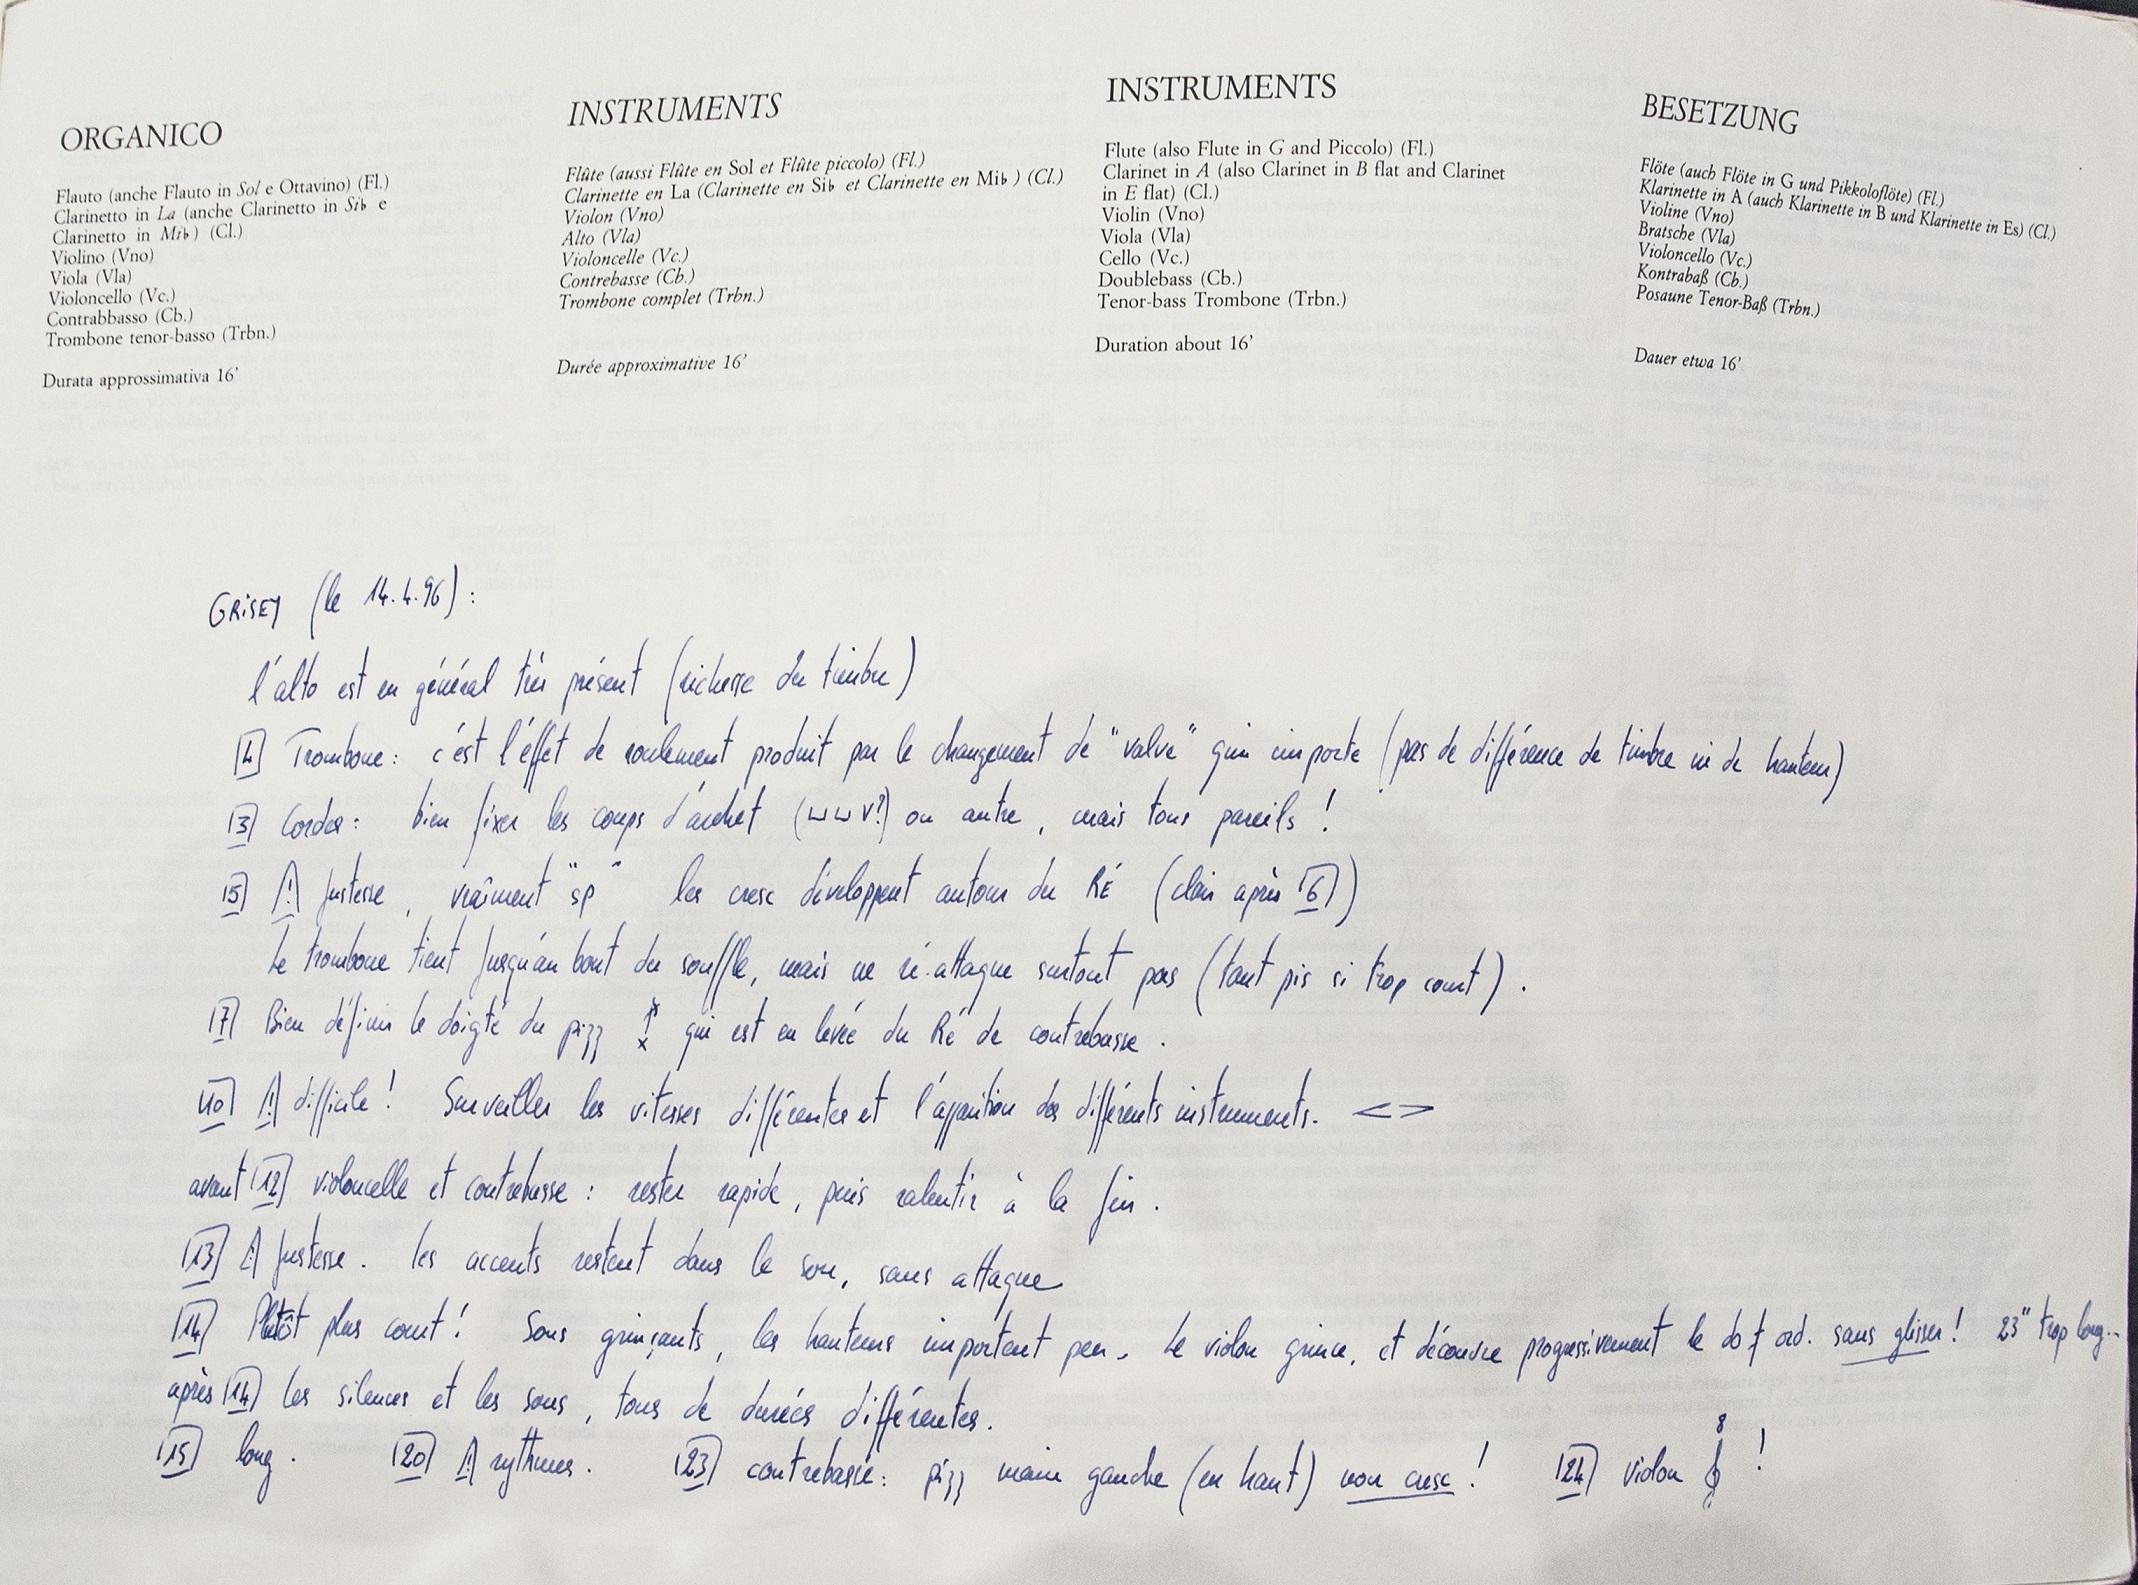 ORGANICO
Flauto (anche Flauto in Sol e Ottavino) (Fl.)
Clarinetto in La (anche Clarinetto in Si♭ e
Clarinetto in Mi♭) (Cl.)
Violino (Vno)
Viola (Vla)
Violoncello (Vc.)
Contrabbasso (Cb.)
Trombone tenor-basso (Trbn.)
Durata approssimativa 16'
INSTRUMENTS
Flûte (aussi Flûte en Sol et Flûte piccolo) (Fl.)
Clarinette en La (Clarinette en Si♭ et Clarinette en Mi♭) (Cl.)
Violon (Vno)
Alto (Vla)
Violoncelle (Vc.)
Contrebasse (Cb.)
Trombone complet (Trbn.)
Durée approximative 16'
INSTRUMENTS
Flute (also Flute in G and Piccolo) (Fl.)
Clarinet in A (also Clarinet in B flat and Clarinet
in E flat) (Cl.)
Violin (Vno)
Viola (Vla)
Cello (Vc.)
Doublebass (Cb.)
Tenor-bass Trombone (Trbn.)
Duration about 16'
BESETZUNG
Flöte (auch Flöte in G und Pikkoloflöte) (Fl.)
Klarinette in A (auch Klarinette in B und Klarinette in Es) (Cl.)
Violine (Vno)
Bratsche (Vla)
Violoncello (Vc.)
Kontrabaß (Cb.)
Posaune Tenor-Baß (Trbn.)
Dauer etwa 16'
GRISEY (le 14.4.96) :
l'alto est en général très présent (richesse du timbre)
4 Trombone : c'est l'effet de roulement produit par le changement de "valve" qui importe (pas de différence de timbre ni de hauteur)
3 Cordes : bien fixer les coups d'archet (⊔ ⊔ V ?) ou autre, mais tous pareils !
5 ! Justesse, vraîment "sp" les cresc développent autour du RÉ (clair après 6)
Le trombone tient jusqu'au bout du souffle, mais ne ré-attaque surtout pas (tant pis si trop court).
7 Bien définir le doigté du pizz qui est en levée du Ré de contrebasse.
10 ! difficile ! Surveiller les vitesses différentes et l'apparition des différents instruments. < >
avant 12 violoncelle et contrebasse : rester rapide, puis ralentir à la fin.
13 ! Justesse. les accents restent dans le son, sans attaque
14 Plutôt plus court ! Sons grinçants, les hauteurs importent peu. Le violon grince, et découvre progressivement le do ord. sans glisser ! 23" trop long..
après 14 les silences et les sons, tous de durées différentes.
15 long. 20 ! rythmes. 23 contrebasse : pizz main gauche (en haut) non cresc ! 24 violon 8 𝄞 !